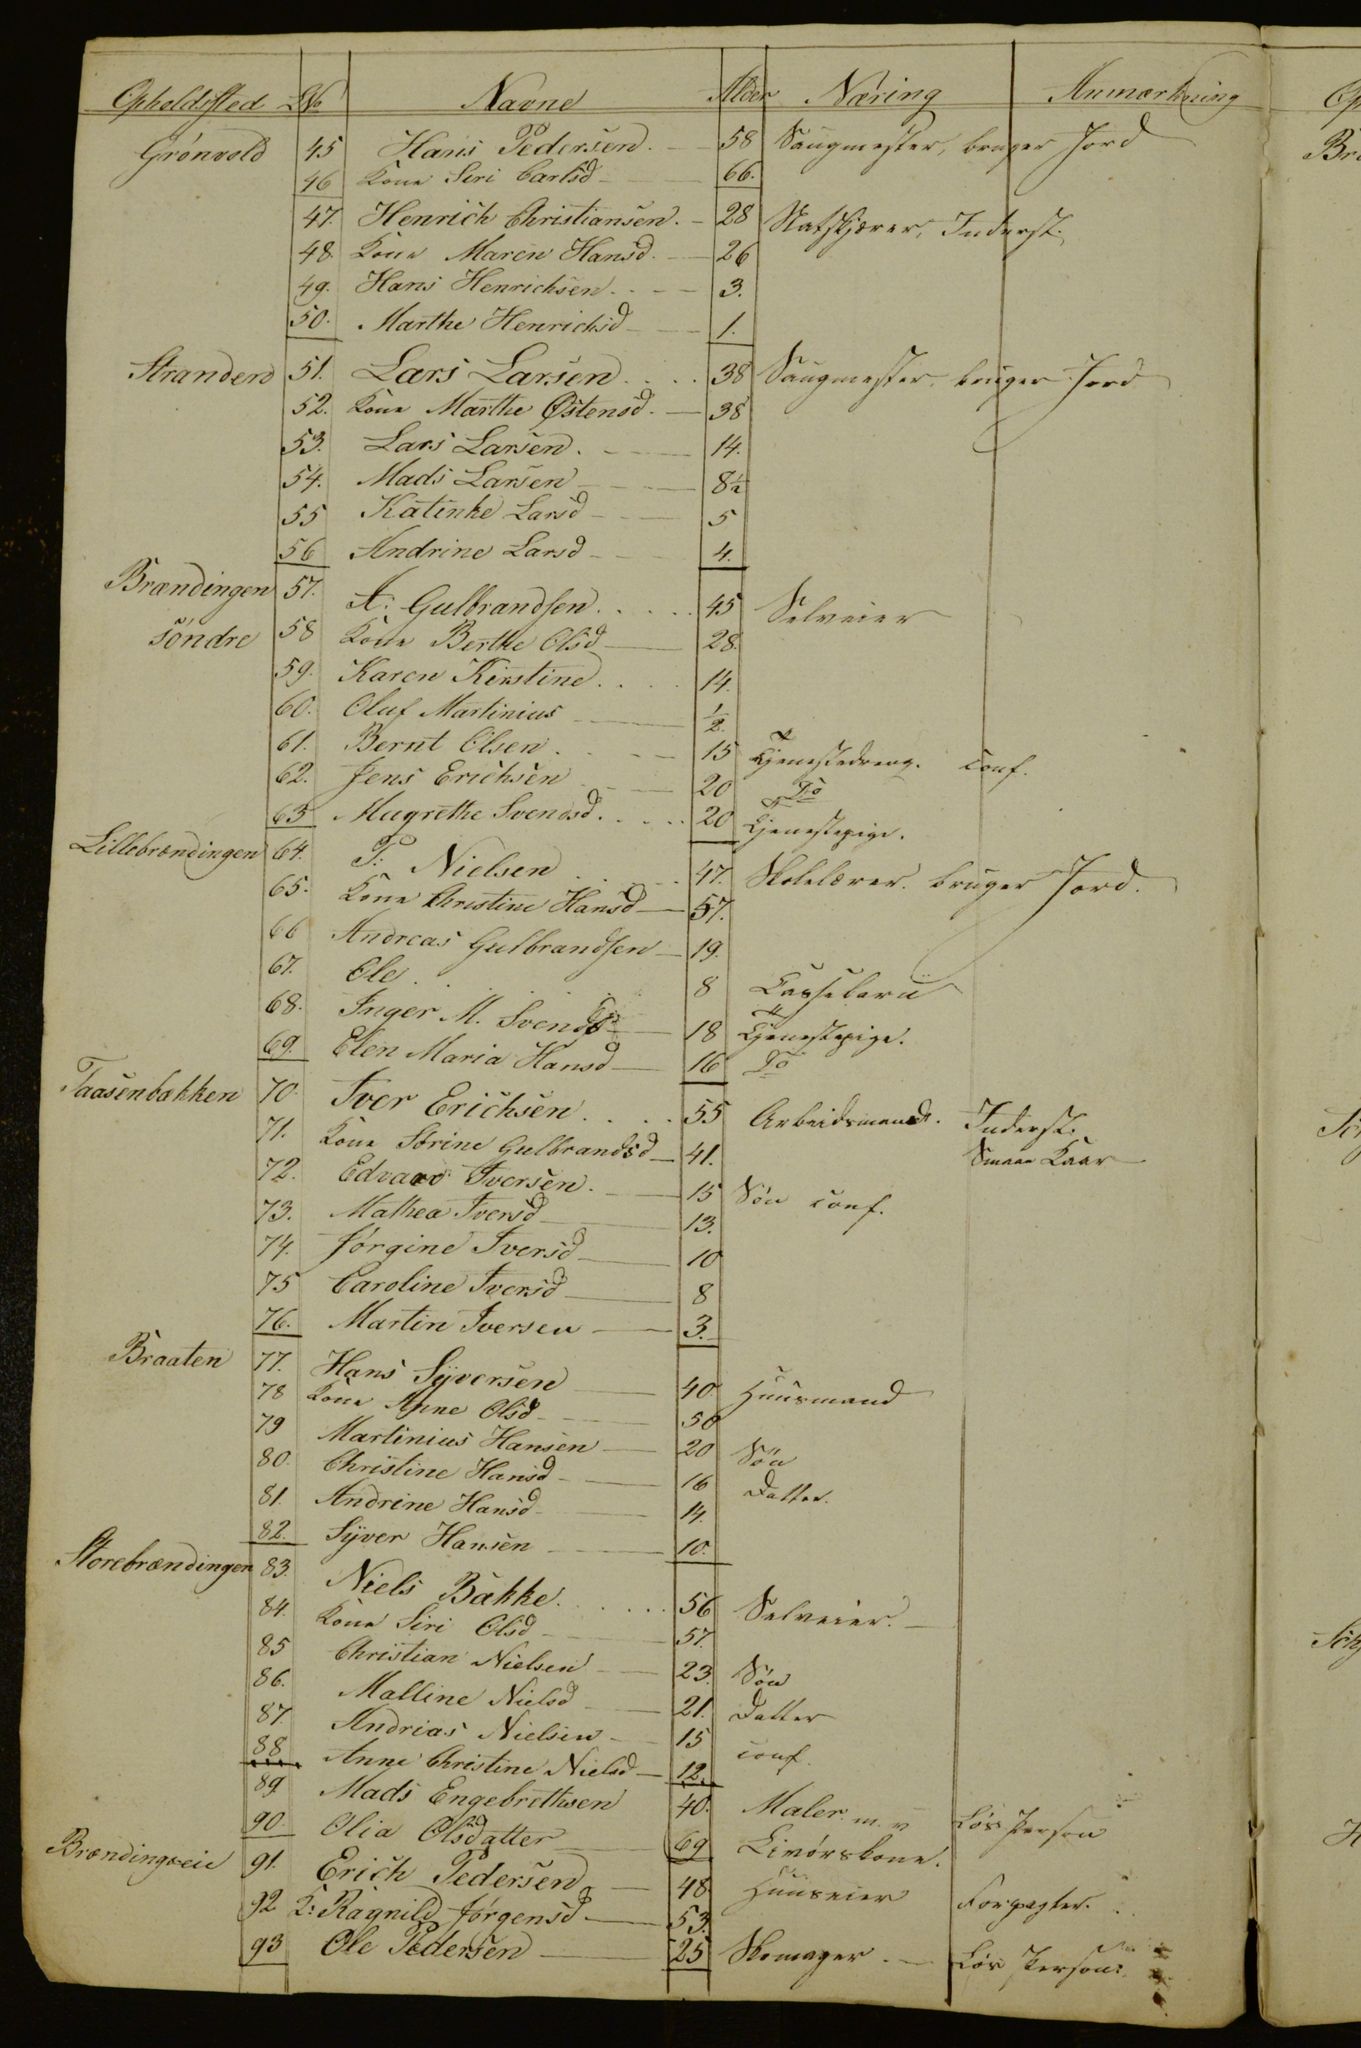 Opholdsted No Navne Alder Næring Anmærkning
Grönvold 45 Hans Pedersen. 58 Saugmester, bruger Jord
46 Kone Siri Carlsd 66.
47. Henrich Christiansen. 28 Inderst.
48. Kone Maren Hansd. 26
49. Hans Henrichsen. 3.
50. Marthe Henrichsd 1.
Stranden 51. Lars Larsen. 38 Saugmester. bruger Jord
52. Kone Marthe Østensd. 38
53. Lars Larsen. 14.
54. Mads Larsen 8½
55 Katinke Larsd 5
56 Andrine Larsd 4.
Brændingen 57. A: Gulbrandsen. 45 Selveier
söndre 58 Kone Berthe Olsd 28.
59. Karen Kirstine. 14.
60. Oluf Martinius ½.
61. Bernt Olsen. 15 Tjenestedreng. conf.
62. Jens Erichsen 20 Do
63 Magrethe Svendsd. 20 Tjenestepige.
Lillebrændingen 64. P: Nielsen 47. Skolelærer. bruger Jord.
65. Kone Christine Hansd 57.
66 Andreas Gulbrandsen 19.
67. Ole. 8
68. Inger M. Svendsd 18 Tjenestepige.
69. Elen Maria Hansd 16 Do
Taasenbakken 70. Iver Erichsen. 55 Arbeidsmand. Inderst.
71. Kone Sörine Gulbrandsd 41. Smaae Kaar
72. Edvard Iversen. 15 Sön conf.
73. Mathea Iversd 13.
74. Jörgine Iversd 10
75 Caroline Iversd 8
76. Martin Iversen 3.
Braaten 77. Hans Syversen 40 Huusmand
78 Kone Anne Olsd 50
79 Martinius Hansen 20 Sön
80. Christine Hansd 16 Datter.
81. Andrine Hansd 14.
82. Syver Hansen 10.
Storebrændingen 83. Niels Bakke. 56 Selveier.
84. Kone Siri Olsd 57.
85 Christian Nielsen 23. Sön
86. Malline Nielsd 21. Datter
87. Andrias Nielsen 15 conf.
88 Anne Christine Nielsd 12.
89. Mads Engebrethsen 40. Maler m. v Lös Person
90. Olia Olsdatter 69 Livörskone.
Brændingseie 91. Erich Pedersen 48 Huuseier Forpagter.
92 K: Ragnild Jörgensd 53.
93 Ole Pedersen 25 Skomager. Lös Person.